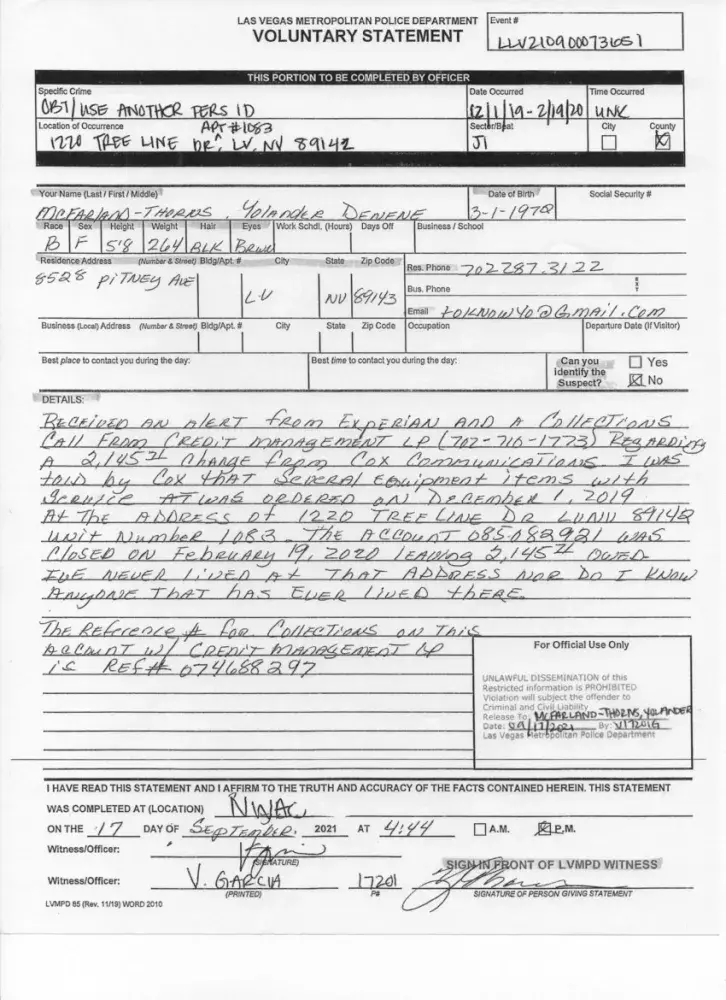 LAS VEGAS METROPOLITAN POLICE DEPARTMENT
VOLUNTARY STATEMENT
Event #
LLV210900073651
THIS PORTION TO BE COMPLETED BY OFFICER
Specific Crime Date Occurred Time Occurred
OBT/USE ANOTHER PERS ID 12/1/19-2/19/20 UNK
Location of Occurrence Sector/Beat City County
1220 TREE LINE DR, APT #1083 LV, NV 89142 J1
Your Name (Last / First / Middle) Date of Birth Social Security #
McFARLAND-THORNS, Yolander DENENE 3-1-1978
Race Sex Height Weight Hair Eyes Work Schdl. (Hours) Days Off Business / School
B F 5'8 264 BLK Brwn
Residence Address (Number & Street) Bldg/Apt. # City State Zip Code Res. Phone 702 287.3122
8528 PiTNEY AVE LV NV 89143
Bus. Phone
Email toknowyo@Gmail.com
Business (Local) Address (Number & Street) Bldg/Apt. # City State Zip Code Occupation Departure Date (If Visitor)
Best place to contact you during the day: Best time to contact you during the day: Can you identify the Suspect? Yes No
DETAILS:
RECEIVED AN Alert from EXPERIAN AND A Collections
CAll From CREDIT MANAGEMENT LP (702-716-1773) REgARDiNg
A 2,145 CHARGE from COX COMMUNICATIONS. I WAS
told by Cox tHAT SEVERAL Equipment items with
Service AT WAS ORDERED ON DECEMBER 1, 2019
At The ADDRESS Of 1220 TREE LINE DR LVNV 89142
UNIT Number 1083. THE Account 085-082921 WAS
Closed ON FebRUARY 19, 2020 leaving 2,145 OWED.
I'VE NEVER LIVED At THAT ADDRESS NOR DO I KNOW
ANYONE THAT HAS EVER LIVED tHERE.
The Reference # for Collections on This
Account w/ CREDIT MANAGEMENT LP
is REF# 074688297
For Official Use Only
UNLAWFUL DISSEMINATION of this
Restricted information is PROHIBITED
Violation will subject the offender to
Criminal and Civil Liability
Release To: McFARLAND-THORNS, YOLANDER
Date: 09/17/2021 By: V17201G
Las Vegas Metropolitan Police Department
I HAVE READ THIS STATEMENT AND I AFFIRM TO THE TRUTH AND ACCURACY OF THE FACTS CONTAINED HEREIN. THIS STATEMENT
WAS COMPLETED AT (LOCATION) NWAC
ON THE 17 DAY OF SEPTEMBER 2021 AT 4:44 A.M. P.M.
Witness/Officer:
(SIGNATURE) SIGN IN FRONT OF LVMPD WITNESS
Witness/Officer: V. GARCIA 17201
(PRINTED) P# SIGNATURE OF PERSON GIVING STATEMENT
LVMPD 85 (Rev. 11/19) WORD 2010